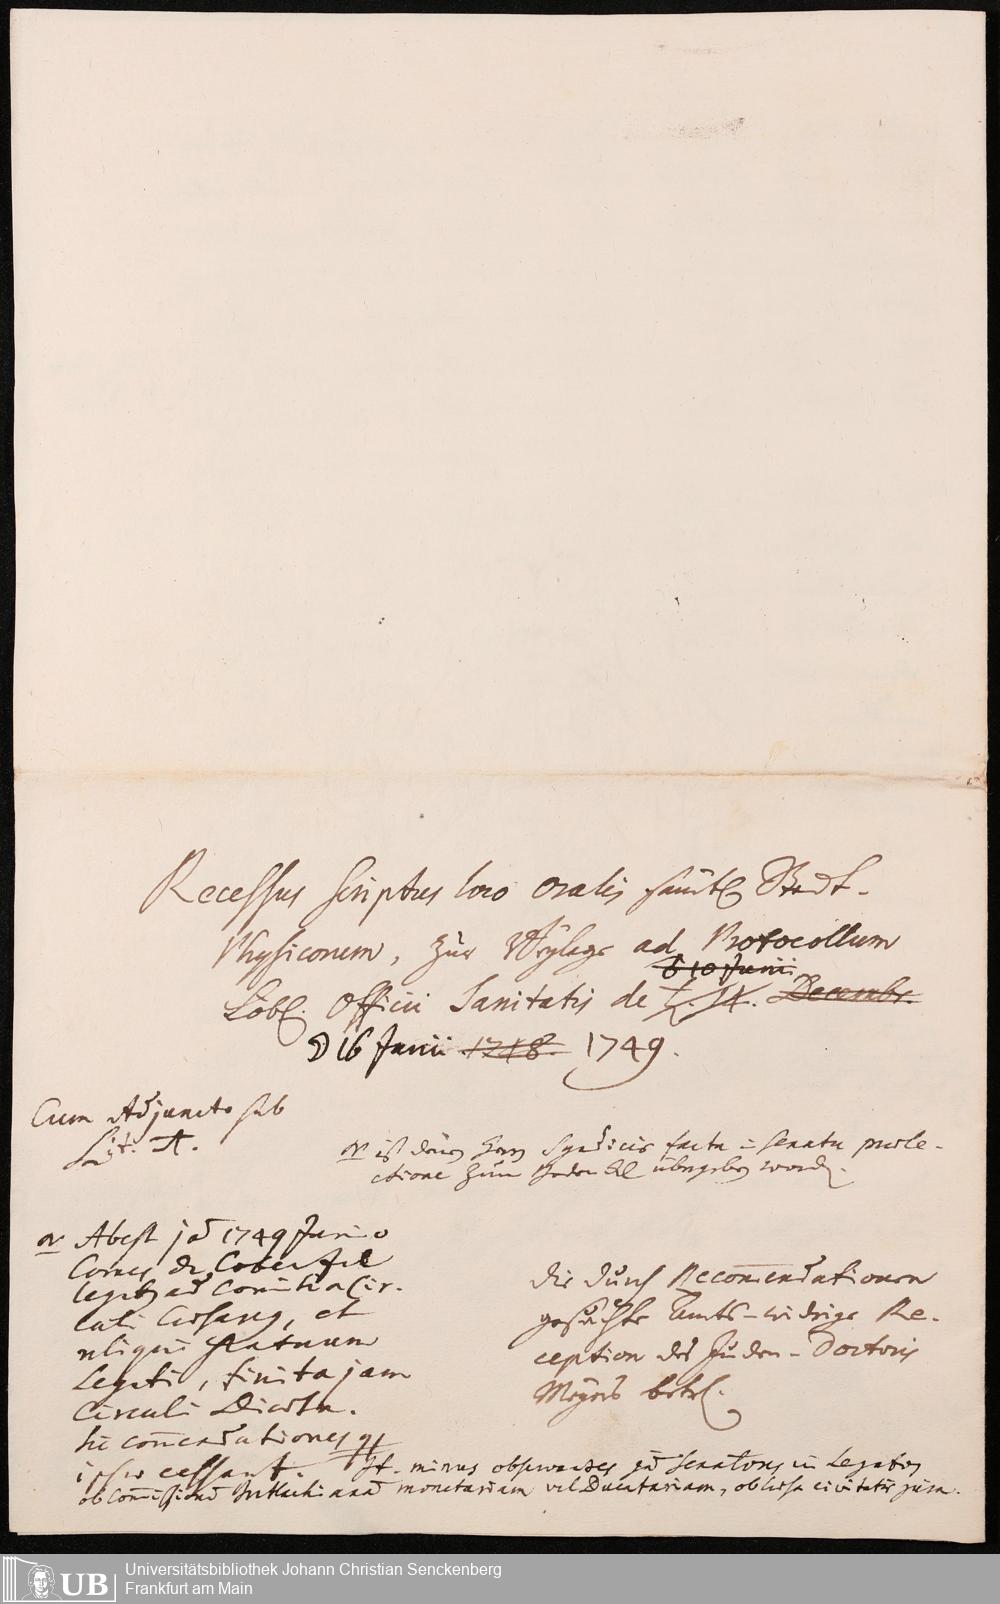 Recessus scriptus loco oralis sämtl. Stadt-
Physicorum, zur Beylage ad Protocollum
d 10 Junii
Löbl. Officii Sanitatis de Decembr.
D 16 Junii 1748. 1749.
Cum Adjuncto sub
Lit. A.
ist denen Herrn Syndicis facta in Senatu praele-
ctione zum übergeben worden.
Abest jam 1749 Junio
Comes de Cobenzel
legatus ad Comitia Cir-
culi et
reliqui Statuum
Legati, finita jam
Circuli Diaeta.
hi commendationes
cessant. minus observantes Senatores in Legatos
monetariam vel Ducatariam, ob civitatis jura.
die durch Recommendationen
gesuchte Amts-widrige Re-
ception des Juden-Doctoris
Meyers betrl.
UB
Universitätsbibliothek Johann Christian Senckenberg
Frankfurt am Main